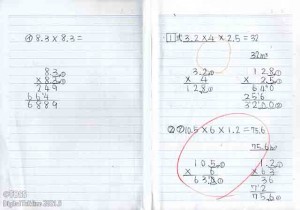 ④ 8.3×8.3=
8.3
×8.3
249
664
6889
1 式 3.2×4×2.5=32
32㎡
3.2
× 4
12.8
12.8
× 2.5
640
256
32.00
② 10.5×6×1.2=75.6
75.6
10.5
× 6
63.0
1.2
× 63
36
72
75.6
©TOSS